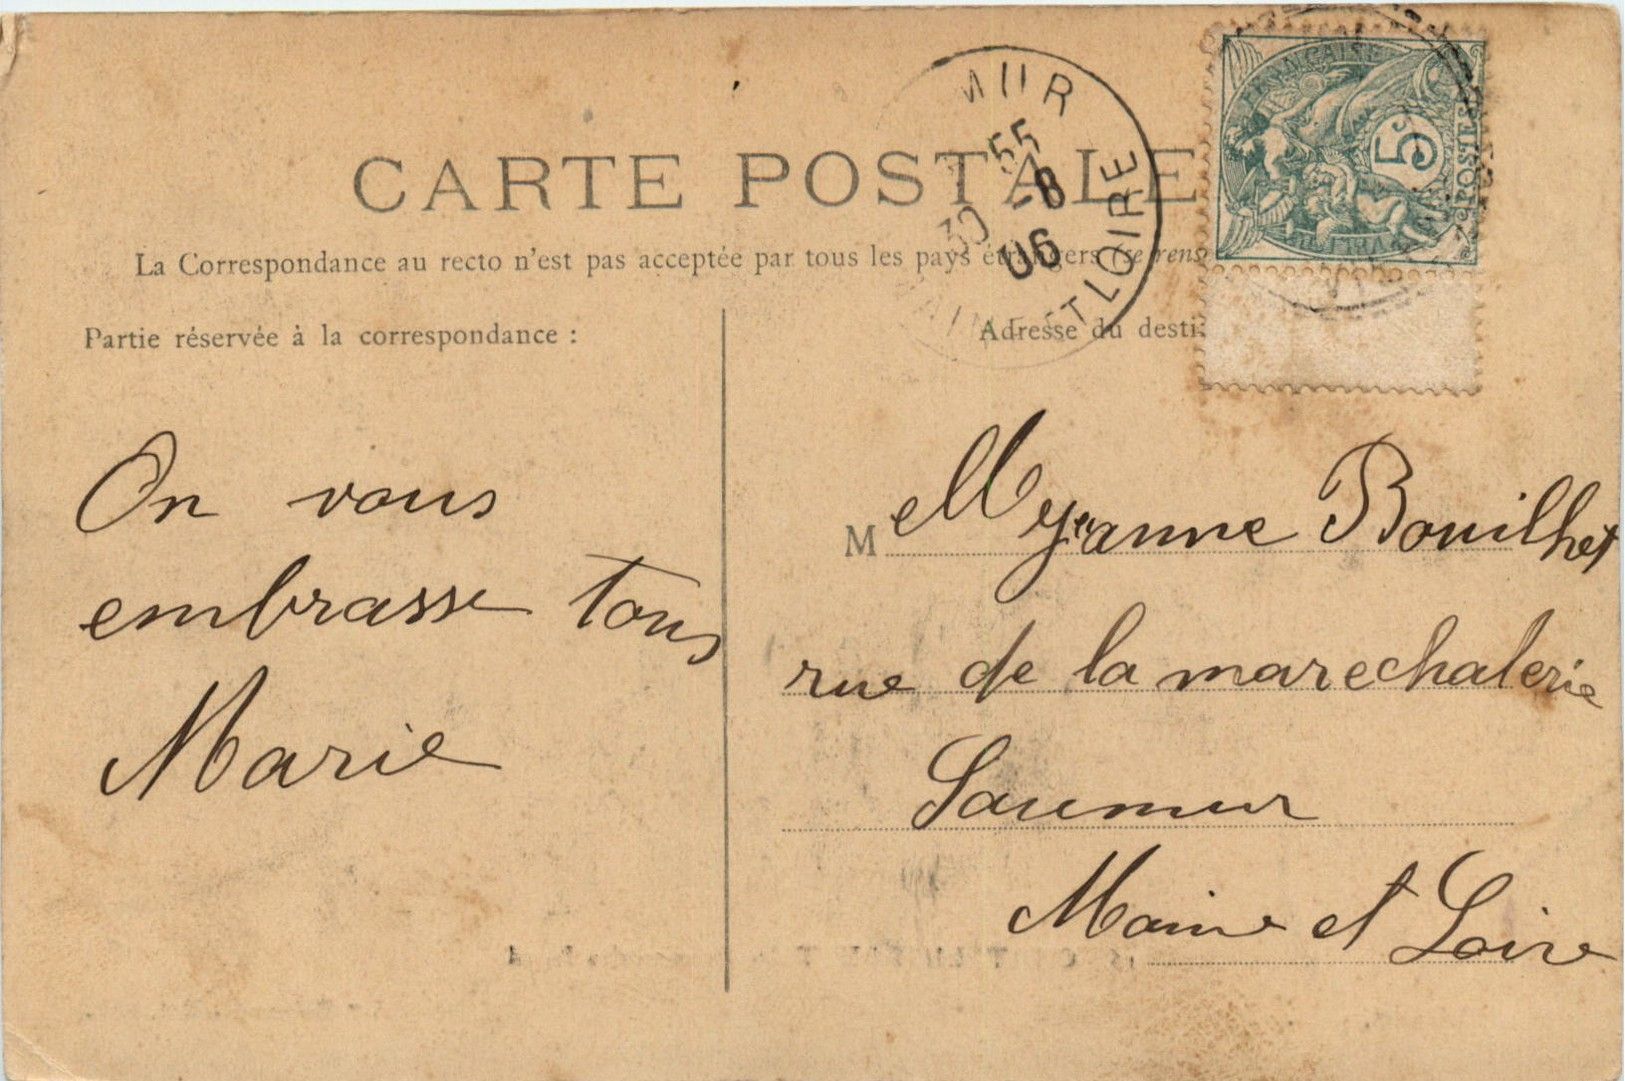 CARTE POSTALE
La Correspondance au recto n'est pas acceptée par tous les pays étrangers (se rens
Partie réservée à la correspondance :
Adresse du desti
MUR
55
30 -8
06
ET LOIRE
FRANÇAISE
5
POSTES
On vous
embrasse tous
Marie
M Mlle Jeanne Bouilhet
rue de la marechalerie
Saumur
Maine et Loire